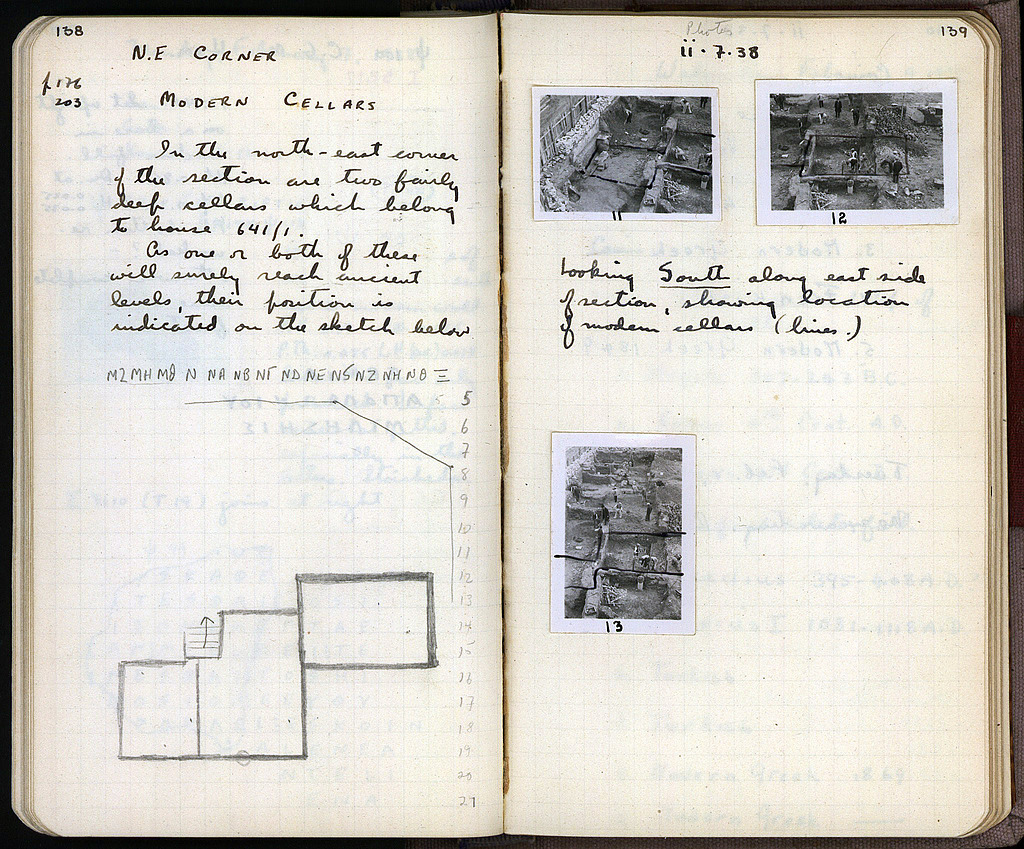 138
N.E. CORNER
p.176
203
MODERN CELLARS
In the north-east corner
of the section are two fairly
deep cellars which belong
to house 641/1.
As one or both of these
will surely reach ancient
levels, their position is
indicated on the sketch below
ΜΖ ΜΗ ΜΘ Ν ΝΑ ΝΒ ΝΓ ΝΔ ΝΕ ΝϚ ΝΖ ΝΗ ΝΘ Ξ
5
6
7
8
9
10
11
12
13
14
15
16
17
18
19
20
21
139
Photos
ii.7.38
11
12
Looking South along east side
of section, showing location
of modern cellars (lines.)
13